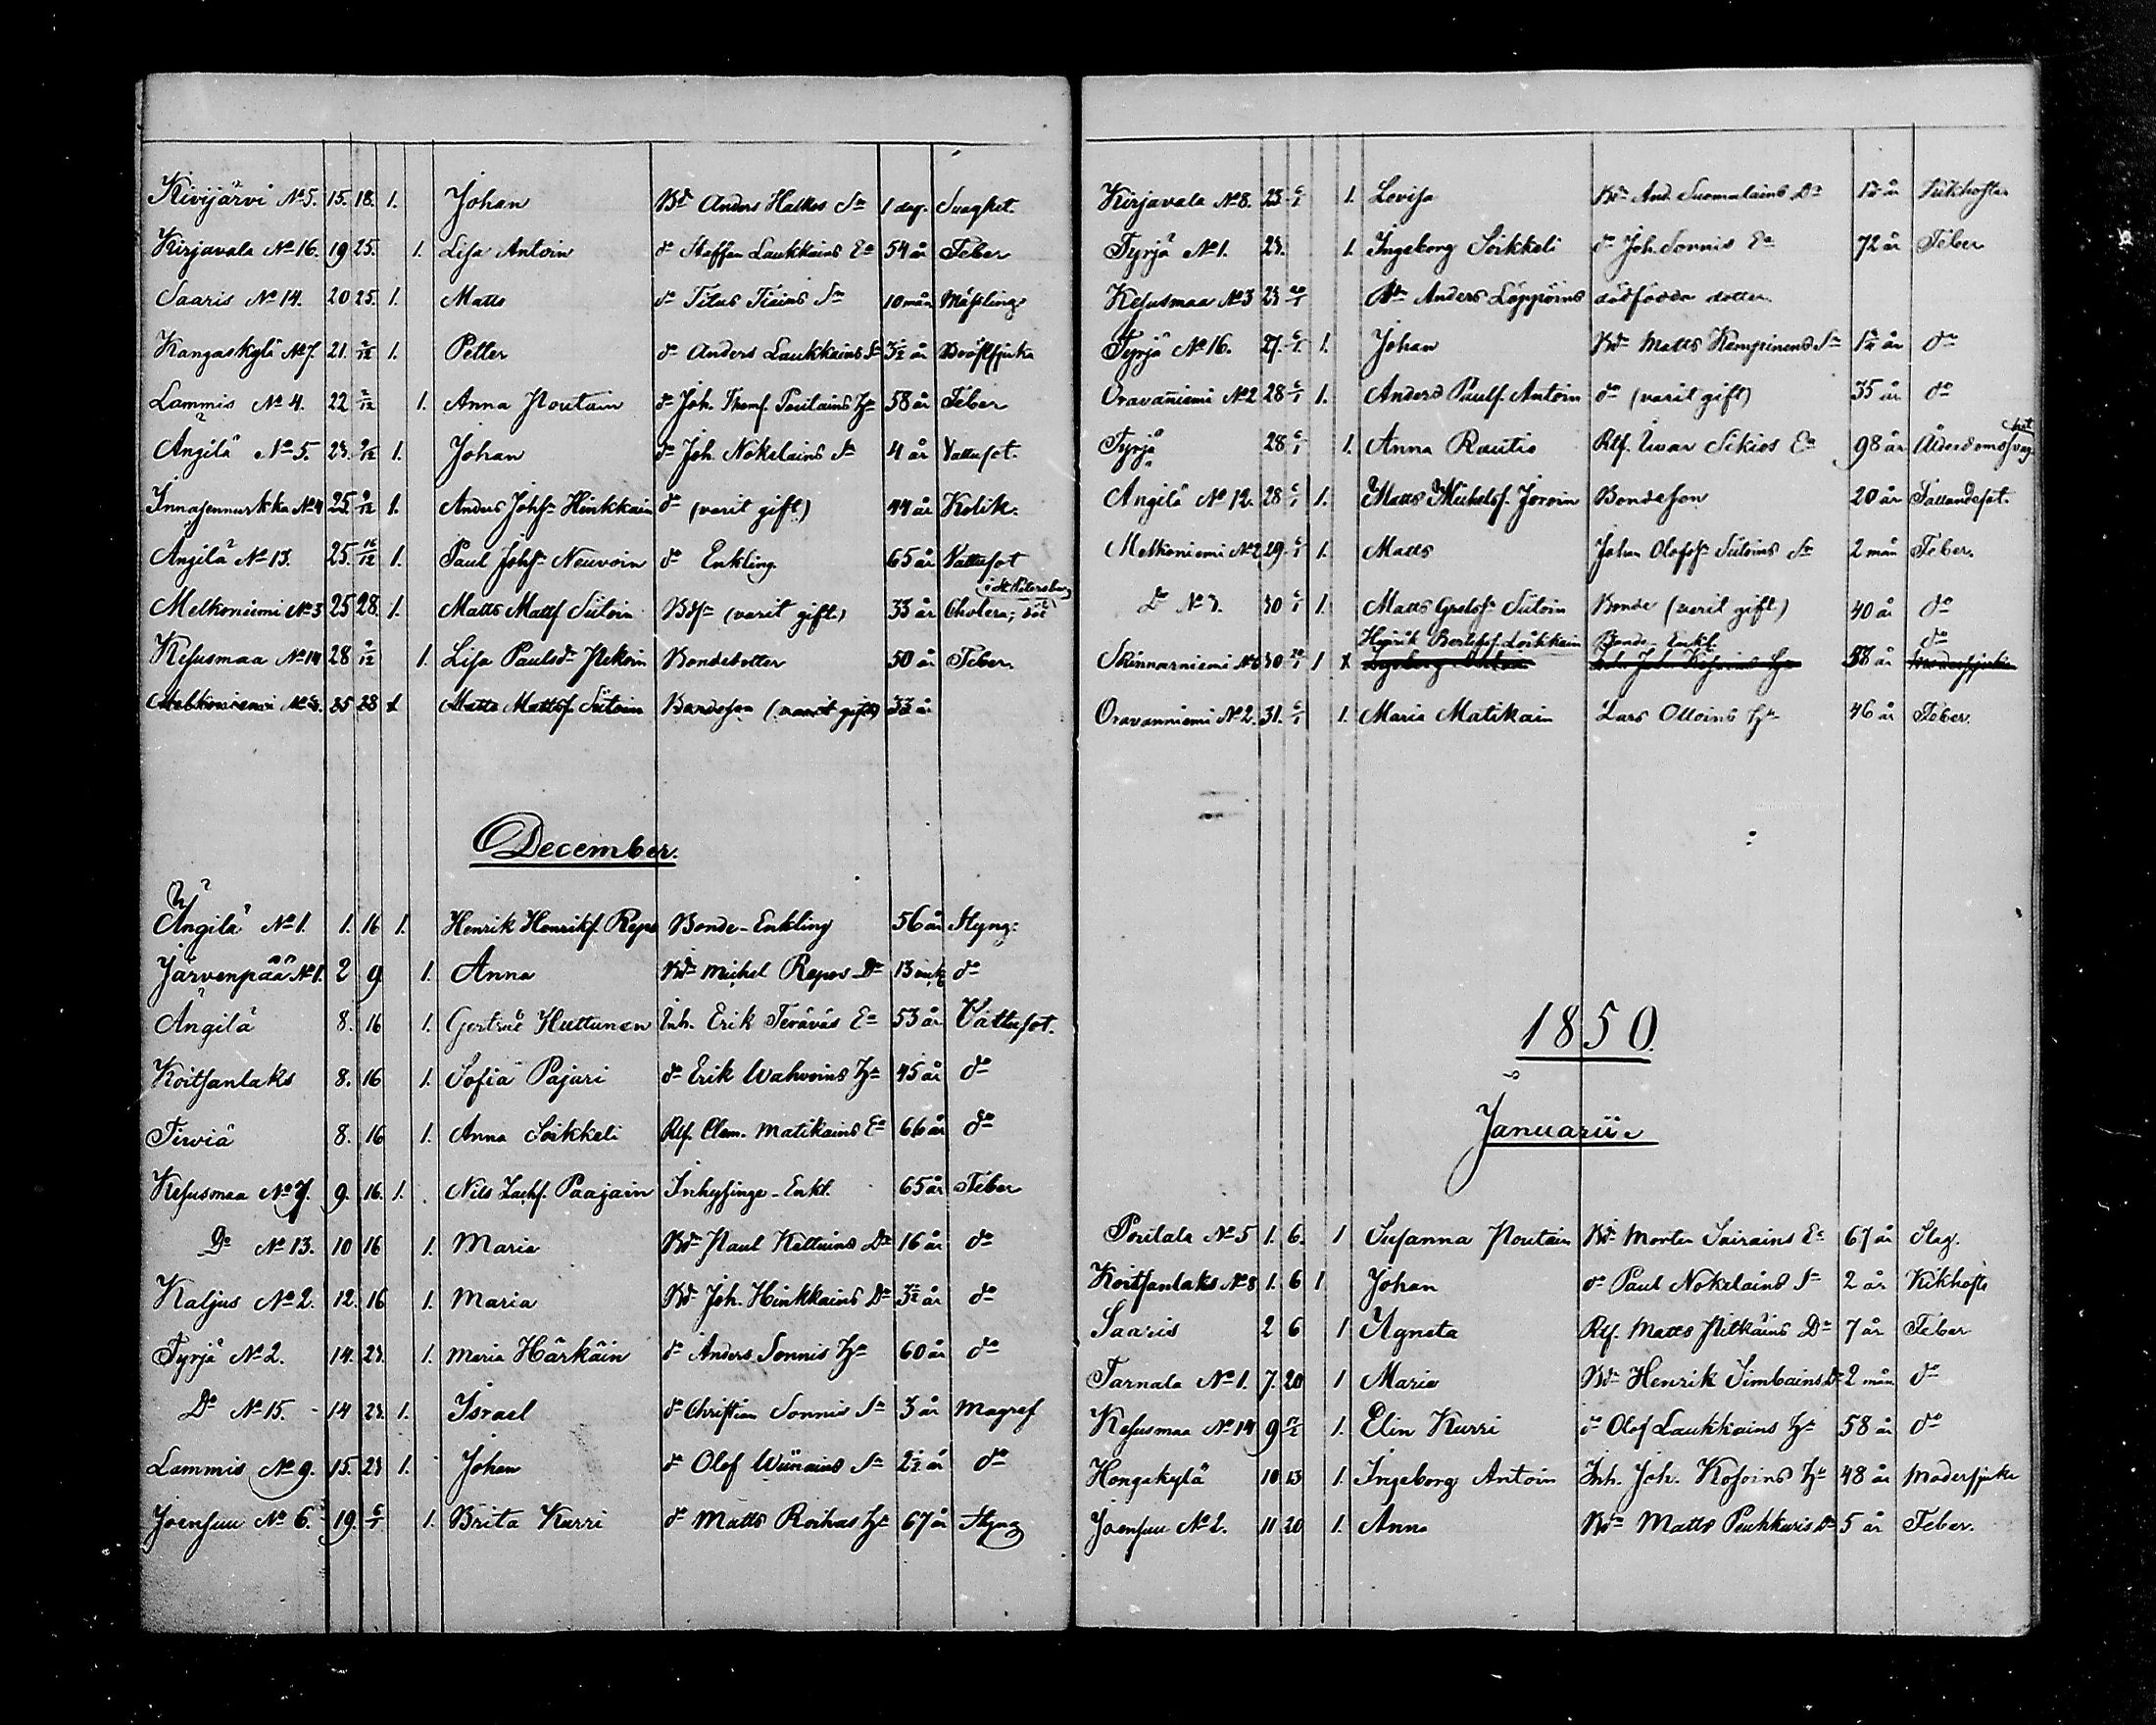 Kivijärvi No 5. 15. 18. 1. Johan Bdn Anders Halkos Sn 1 dag. Svaghet.
Kirjavala No 16. 19 25. 1. Lisa Antoin do Staffan Laukkains Ea 54 år Feber
Saaris No 14. 20 25. 1. Matts do Titus Tiains Sn 10 mån Mässling
Kangaskylä No 7. 21. 2/12 1. Petter do Anders Laukkains Sn 3 1/2 år Bröstsjuka
Lammis No 4. 22 2/12 1. Anna Poutain do Joh. Thomss. Poutains Hu 58 år Feber
Ängilä No 5. 23. 2/12 1. Johan do Joh. Nokelains Sn 4 år Vattusot.
Innasennurkka No 4 25. 9/12 1. Anders Johsn Hinkkain do (varit gift) 44 år Kolik.
Ängilä No 13. 25. 16/12 1. Paul Johsn Neuvoin do Enkling 65 år Vattusot
Melkoniemi No 3 25 28. 1. Matts Matss Siitoin Bdsn (varit gift.) 33 år Cholera, död i St Petersburg
Kesusmaa No 14 28 2/12 1. Lisa Paulsdr Pekoin Bondedotter 50 år Feber
Melkoniemi No 3. 25 28 1 Matts Mattss Siitoin Bondeson (varit gift) 33 år
December.
Ängilä No 1. 1. 16 1. Henrik Henrikss. Repo Bonde-Enkling 56 år Styng.
Järvenpää No 1. 2 9 1. Anna Bdn Michel Repos Dr 13 do
Ängilä 8. 16 1. Gertrud Huttunen Inh. Erik Teräväs Ea 53 år Vattusot.
Koitsanlaks 8. 16 1. Sofia Pajari do Erik Wahvoins Hu 45 år do
Terviä 8. 16 1. Anna Soikkeli Rlf. Clem. Matikains Ea 66 år do
Kesusmaa No 7. 9. 16. 1. Nils Zachss. Paajain Inhysinge-Enkl. 65 år Feber
Do No 13. 10 16 1. Maria Bdn Paul Kattuins Dr 16 år do
Kaljus No 2. 12. 16 1. Maria Bdn Joh. Hinkkains Dr 3 1/2 år do
Tyrjä No 2. 14. 23. 1. Maria Härkäin do Anders Sonnis Hu 60 år do
Do No 15. 14 23. 1. Israel do Christian Sonnis Sn 3 år Magref
Lammis No 9. 15. 23 1. Johan do Olof Wiinains Sn 2 1/2 år do
Joensuu No 6. 19. 6/1 1. Brita Kurri do Matts Roihas Hu 67 år Styng
Kirjavala No 8. 23. 6/1 1. Lovisa Bdn And. Suomalains Dr år Kikhosta
Tyrjä No 1. 23. 1. Ingeborg Soikkeli do Joh. Sonnis Ea 72 år Feber
Kesusmaa No 3 23 20/1 Bdn Anders Löppöins dödfödda dotter.
Tyrjä No 16. 27. 6/1 1. Johan Bdn Matts Kempinens Sn år do
Oravaniemi No 2 28 6/1 1. Anders Paulss. Antoin do (varit gift) 35 år do
Tyrjä 28 6/1 1. Anna Rautio Rlf. Ivar Sikios Ea 98 år Ålderdomssvaghet
Ängilä No 12. 28 6/1 1. Matts Michelss. Joroin Bondeson 20 år Fallandesot.
Melkoniemi No 2 29. 6/1 1. Matts Johan Olofss Siitoins Sn 2 mån Feber.
Do No 3. 30 6/1 1. Matts Siitoin Bonde (varit gift) 40 år do
Skinnarniemi 30 20/1 1 Henrik Loikkain Bonde-Enkl. 58 år do
Oravanniemi No 2. 31. 6/1 1. Maria Matikain Lars Olloins Hu 46 år Feber.
1850.
Januarii
Poutala No 5 1. 6. 1 Susanna Poutain Bdn Morten Sairains Ea 67 år Slag.
Koitsanlaks No 8 1. 6 1 Johan do Paul Nokelains Sn 2 år Kikhosta
Saaris 2 6 1 Agneta Rlf. Matts Pitkäins Dr 7 år Feber
Tarnala No 1. 7. 20 1 Maria Bdn Henrik Simbains Dr 2 mån do
Kesusmaa No 14 9 1. Elin Kurri do Olof Laukkains Hu 58 år do
Hongakylä 10 13 1. Ingeborg Antoin Inh. Joh. Kosoins Hu 48 år Modersjuka
Joensuu No 2. 11 20 1. Anna Bdn Matts Peuhkuris Dr 5 år Feber.